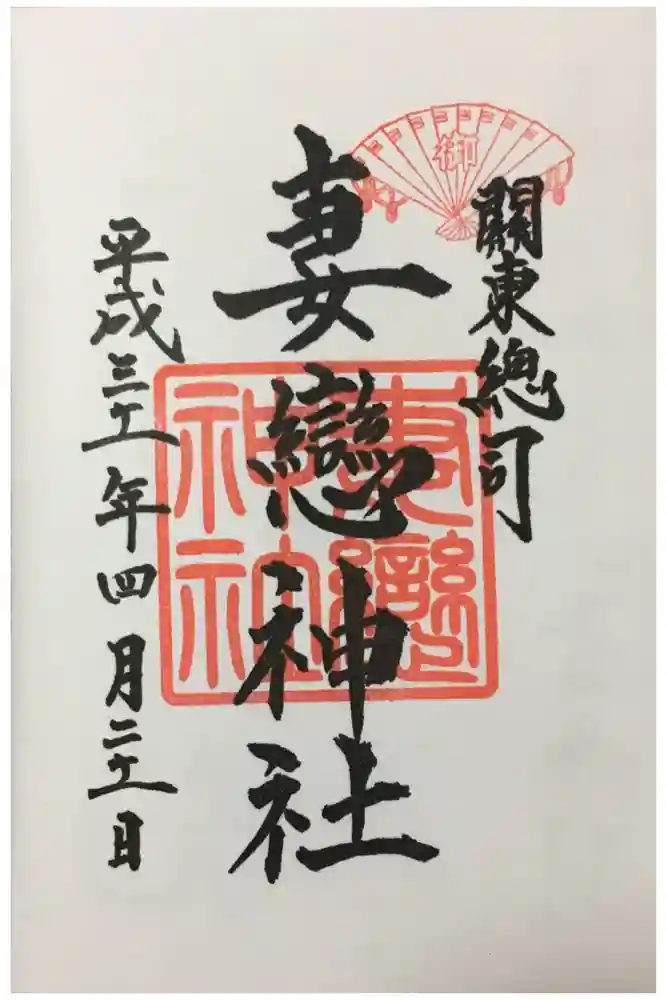 御
關東總司
妻戀神社
妻戀神社
平成三十一年四月二十一日